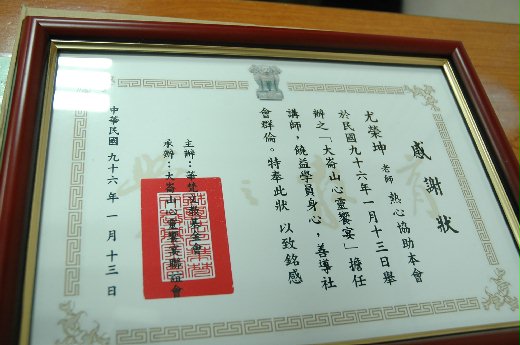 感謝狀
尤榮坤 老師 熱心協助本會
於民國九十六年一月十三日舉
辦之「大崙山心靈饗宴」擔任
講師，饒益學員身心，善導社
會群倫。特奉此狀 以致銘感
主辦：華梵
承辦：大崙山心靈饗宴聯誼會
中華民國 九十六年 一月十三日